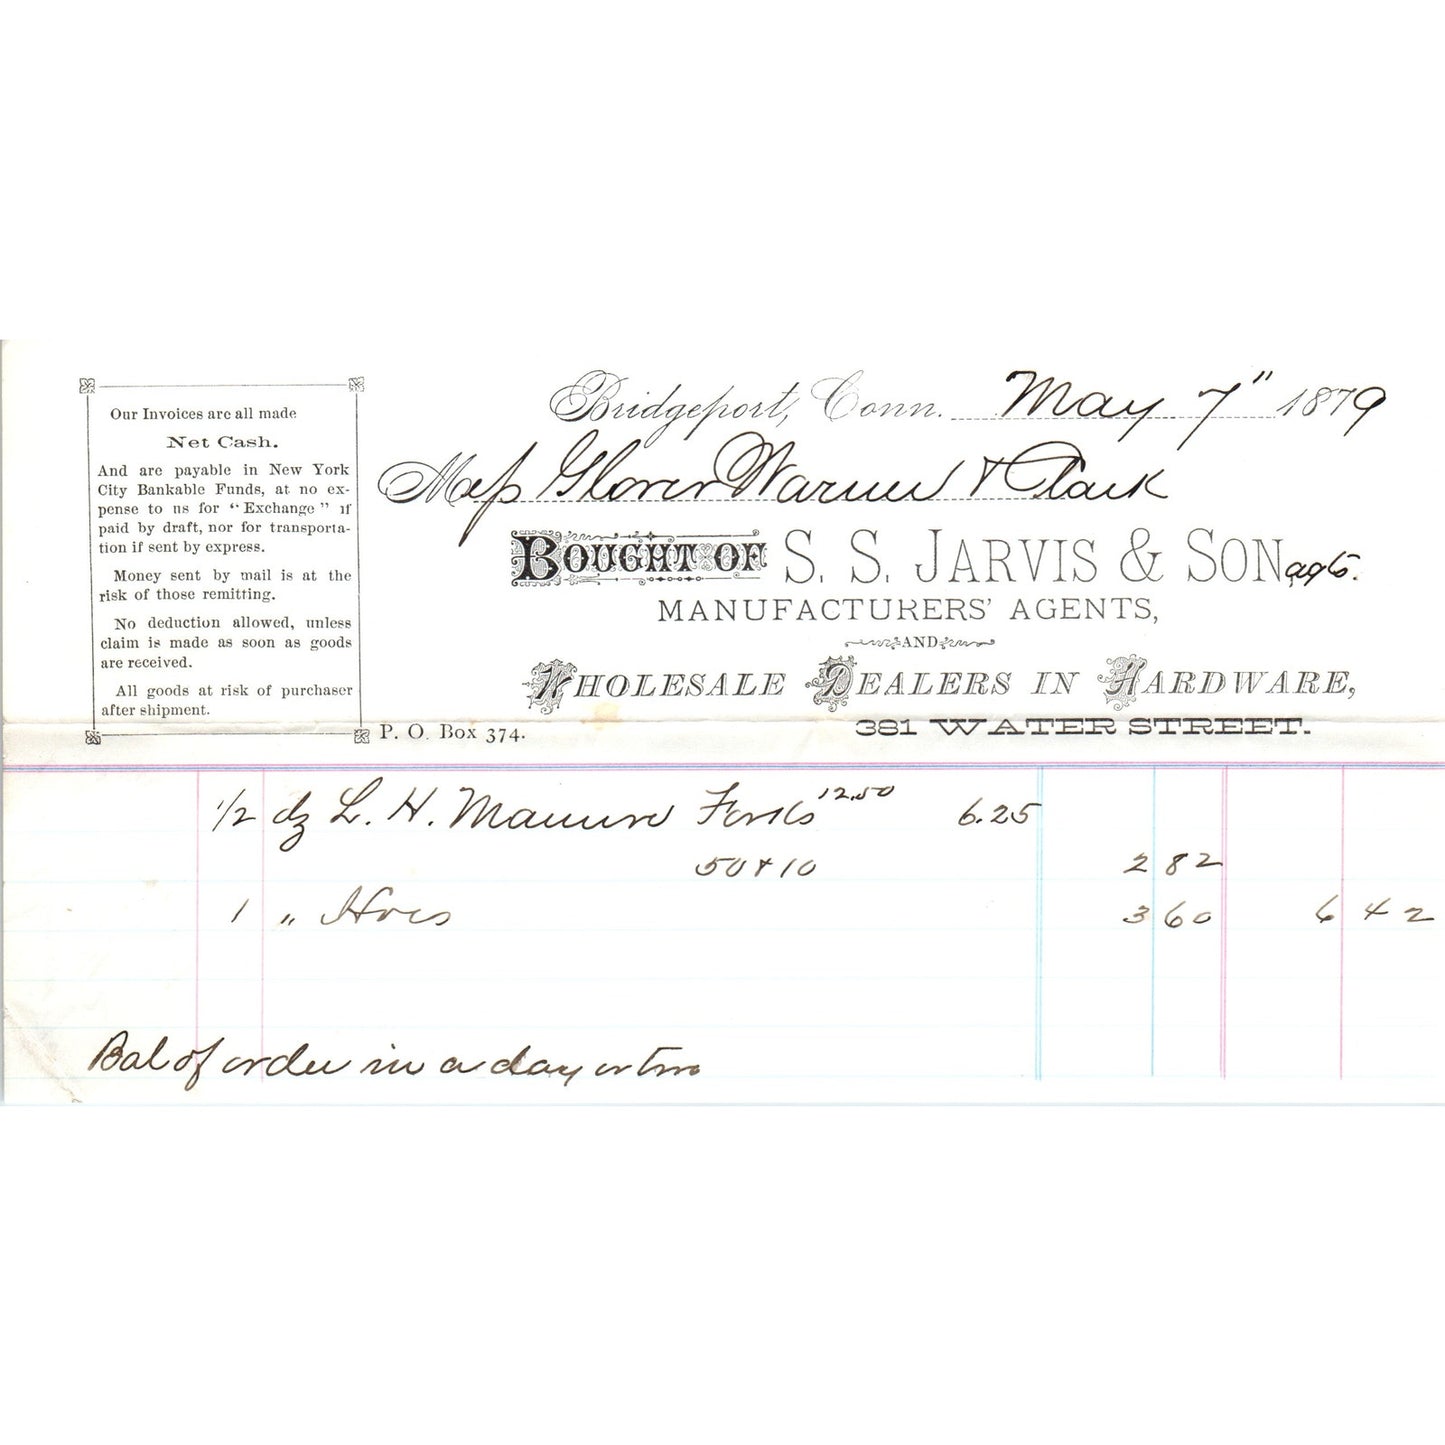 Our Invoices are all made
Net Cash.
And are payable in New York
City Bankable Funds, at no ex-
pense to us for "Exchange" if
paid by draft, nor for transporta-
tion if sent by express.
Money sent by mail is at the
risk of those remitting.
No deduction allowed, unless
claim is made as soon as goods
are received.
All goods at risk of purchaser
after shipment.
Bridgeport, Conn. May 7" 1879
Mess Glover Warner & Clark
BOUGHT OF S. S. JARVIS & SON agts.
MANUFACTURERS' AGENTS,
AND
WHOLESALE DEALERS IN HARDWARE,
P. O. Box 374. 381 WATER STREET.
1/2 dz L. H. Manure Forks 12.50 6.25
50 & 10 2 82
1 " Hoes 3 60 6 42
Bal of order in a day or two